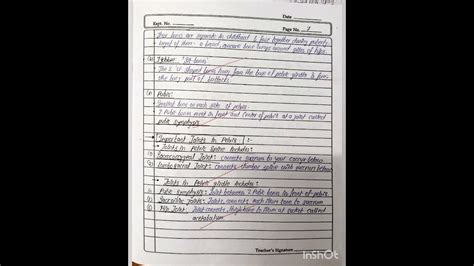 Date
Expt. No.
Page No. 7
These bones are separate in childhood & fuse together during puberty
largest of them - a broad, bone
(b) Ischium: "Sit bones"
The 2 'L' shaped bones from the base of pelvic girdle & form
the bony part of buttocks
(c) Pubis:
Smallest bone on each side of pelvis.
2 Pubic bones meet in front and center of pelvis at a joint called
pubic symphysis
Important Joints in Pelvis :-
Joints in Pelvic Spine Includes:
Sacrococcygeal Joint: connects sacrum to your coccyx below
Lumbosacral Joint: connects lumbar spine with sacrum below
Joints in Pelvic girdle includes:
Pubic Symphysis: Joint between 2 Pubic bones in front of pelvis
Sacroiliac Joints: Joints connects each Ilium bone to sacrum
Hip Joint: Joint connects thigh bone to Ilium at socket called
acetabulum
Teacher's Signature
InShOt